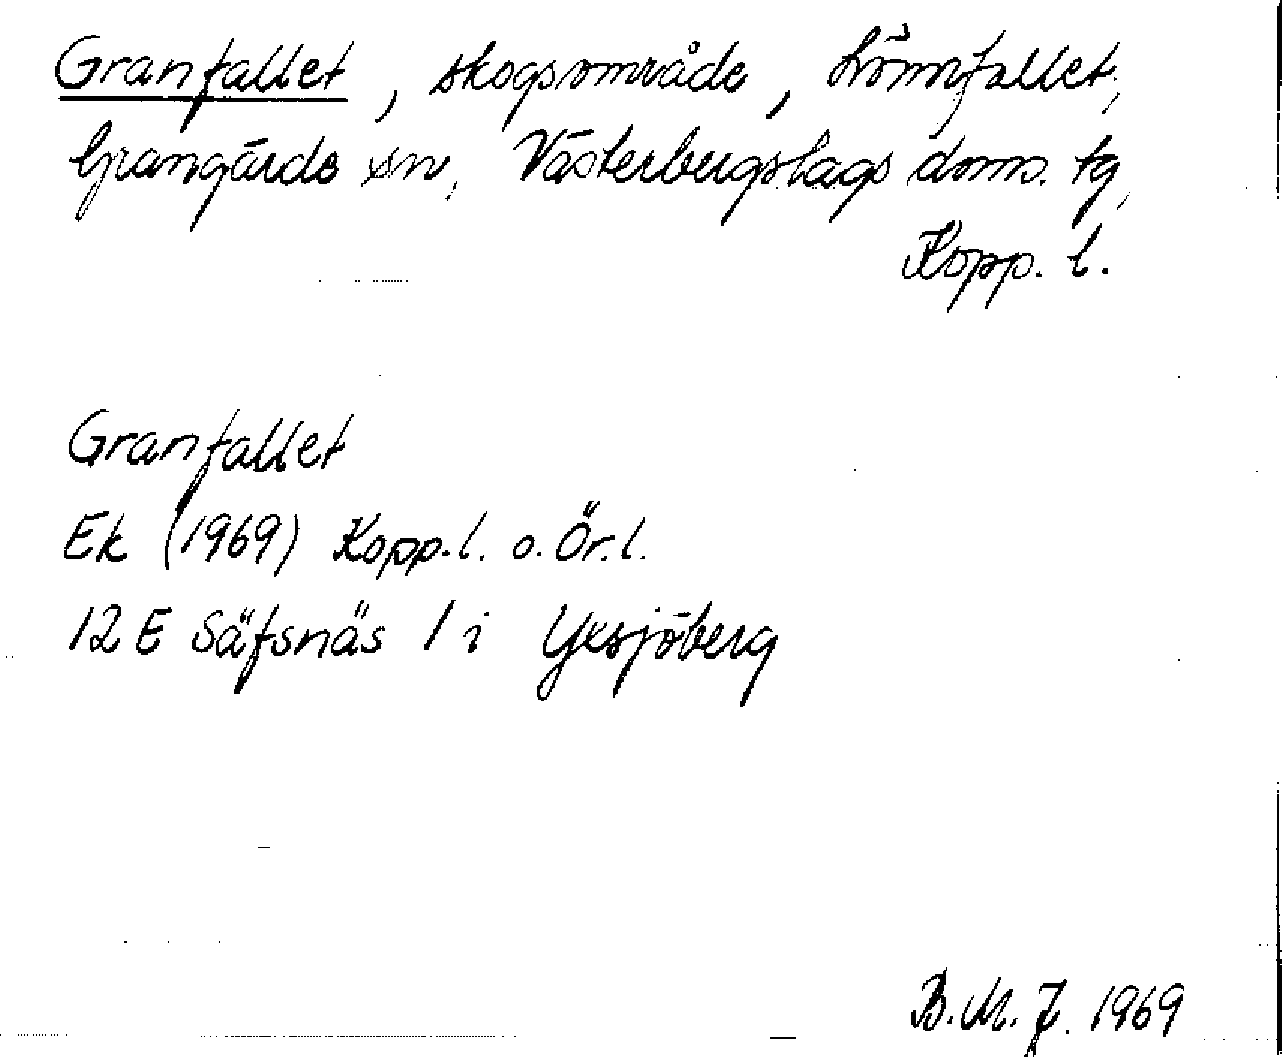 Granfallet, skogsområde, Lömfallet,
Grangärde sn, Västerbergslags doms. tg,
Kopp. l.
Granfallet
Ek (1969) Kopp. l. o. Ör. l.
12 E Säfsnäs 1 i Yxsjöberg
B. M. J. 1969